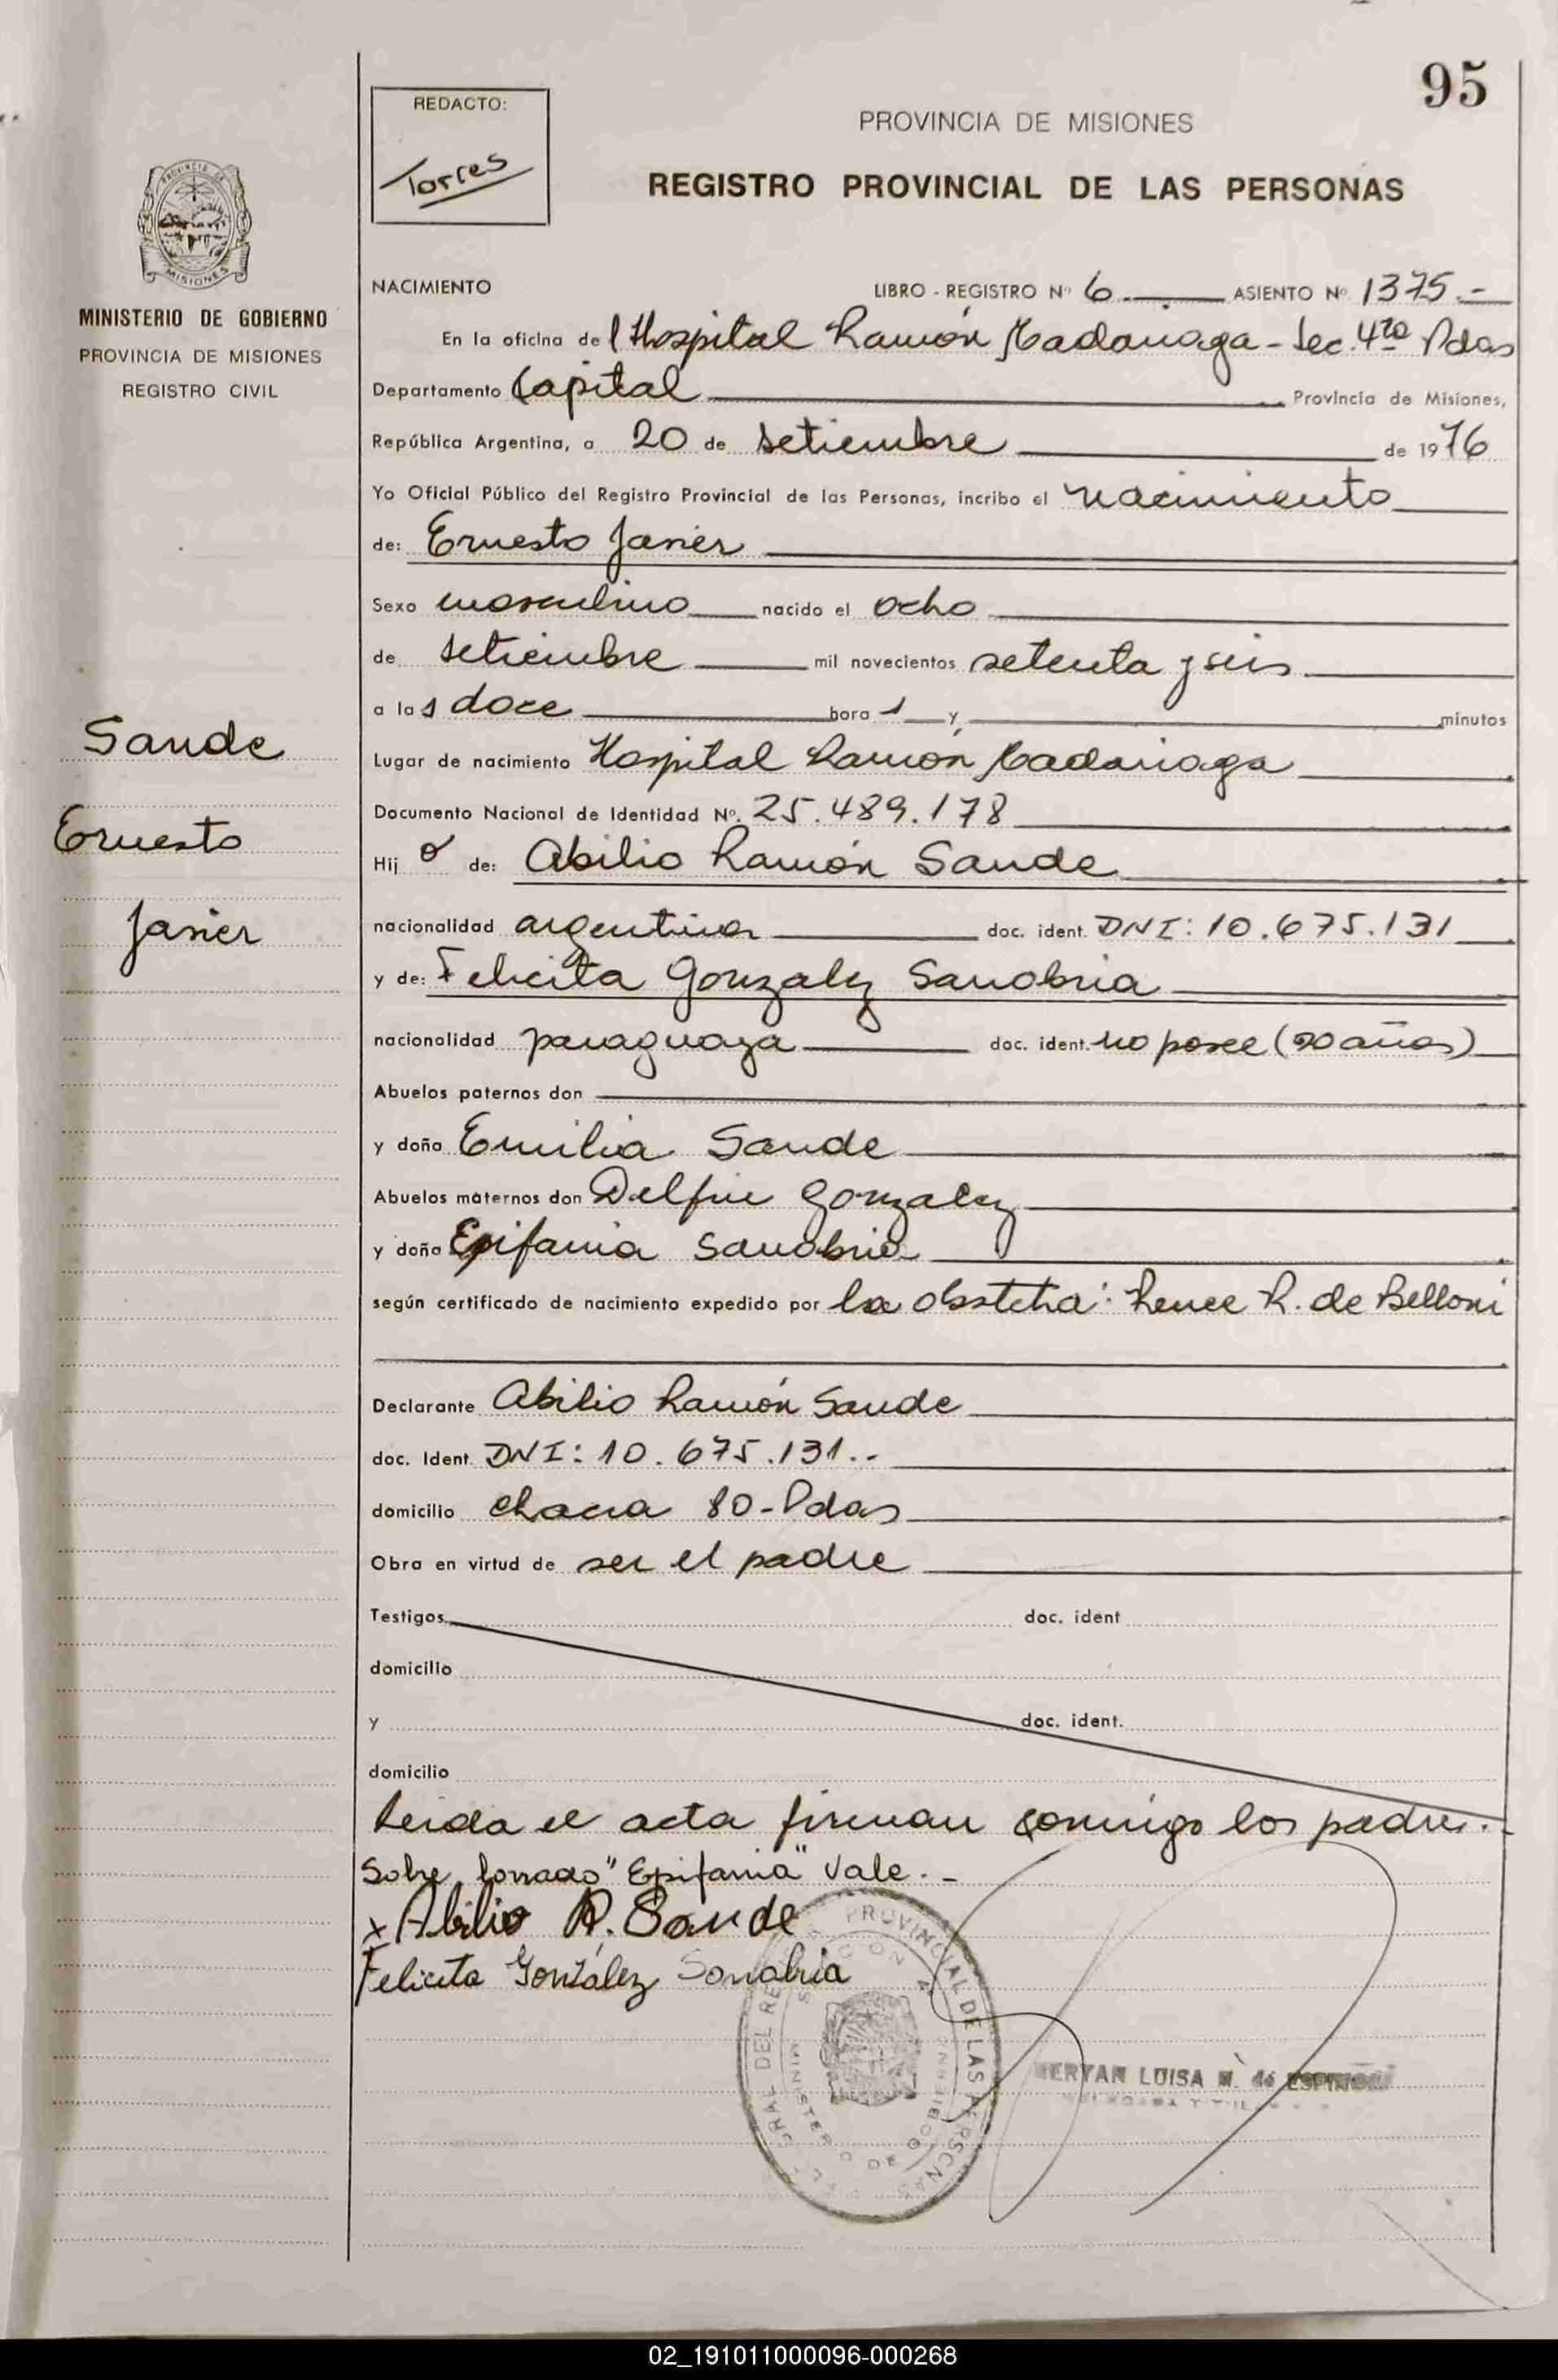 95
REDACTO:
Torres
PROVINCIA DE MISIONES
REGISTRO PROVINCIAL DE LAS PERSONAS
PROVINCIA DE
MISIONES
MINISTERIO DE GOBIERNO
PROVINCIA DE MISIONES
REGISTRO CIVIL
Sande
Ernesto
Javier
NACIMIENTO LIBRO - REGISTRO Nº 6 ASIENTO Nº 1375.-
En la oficina del Hospital Ramón Madariaga - Sec. 4ta Pdas
Departamento Capital Provincia de Misiones,
República Argentina, a 20 de setiembre de 1976
Yo Oficial Público del Registro Provincial de las Personas, incribo el nacimiento
de: Ernesto Javier
Sexo masculino nacido el ocho
de setiembre mil novecientos setenta y seis
a las doce hora s y minutos
Lugar de nacimiento Hospital Ramón Madariaga
Documento Nacional de Identidad Nº. 25.489.178
Hijo de: Abilio Ramón Sande
nacionalidad argentina doc. ident. DNI: 10.675.131
y de: Felicita Gonzalez Sanabria
nacionalidad paraguaya doc. ident. no posee (20 años)
Abuelos paternos don
y doña Emilia Sande
Abuelos maternos don Delfin Gonzalez
y doña Epifania Sanabria
según certificado de nacimiento expedido por la obstetra: Renee R. de Belloni
Declarante Abilio Ramón Sande
doc. Ident. DNI: 10.675.131.-
domicilio chacra 80 - Pdas
Obra en virtud de ser el padre
Testigos doc. ident
domicilio
y doc. ident.
domicilio
Leida el acta firman conmigo los padres.-
Sobre borrado "Epifania" Vale.-
x Abilio R. Sande
Felicita González Sanabria
PROVINCIAL DE LAS PERSONAS
MINISTERIO DE GOBIERNO
LUISA
02_191011000096-000268